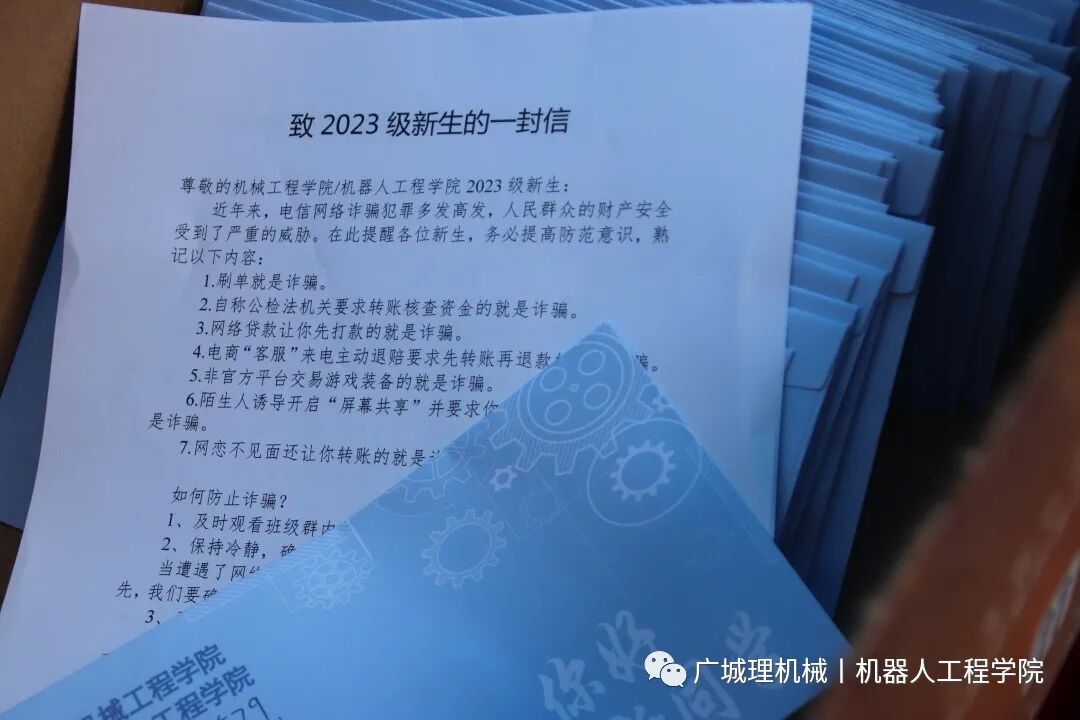 致 2023 级新生的一封信
尊敬的机械工程学院/机器人工程学院 2023 级新生：
近年来，电信网络诈骗犯罪多发高发，人民群众的财产安全
受到了严重的威胁。在此提醒各位新生，务必提高防范意识，熟
记以下内容：
1.刷单就是诈骗。
2.自称公检法机关要求转账核查资金的就是诈骗。
3.网络贷款让你先打款的就是诈骗。
4.电商“客服”来电主动退赔要求先转账再退款 骗。
5.非官方平台交易游戏装备的就是诈骗。
6.陌生人诱导开启“屏幕共享”并要求你
是诈骗。
7.网恋不见面还让你转账的就是
如何防止诈骗？
1、及时观看班级群内
2、保持冷静，确
当遭遇了网络
先，我们要确
3、
机械工程学院
工程学院
你好
同学
广城理机械丨机器人工程学院